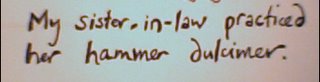 My sister-in-law practiced
her hammer dulcimer.